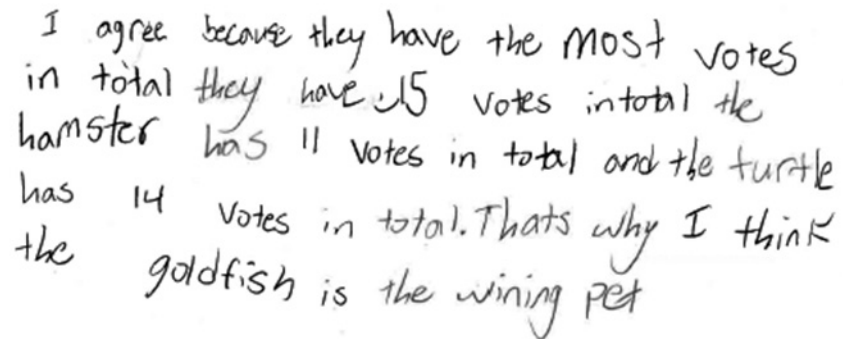 I agree because they have the most votes
in total they have 15 votes in total the
hamster has 11 votes in total and the turtle
has 14 votes in total. Thats why I think
the goldfish is the wining pet